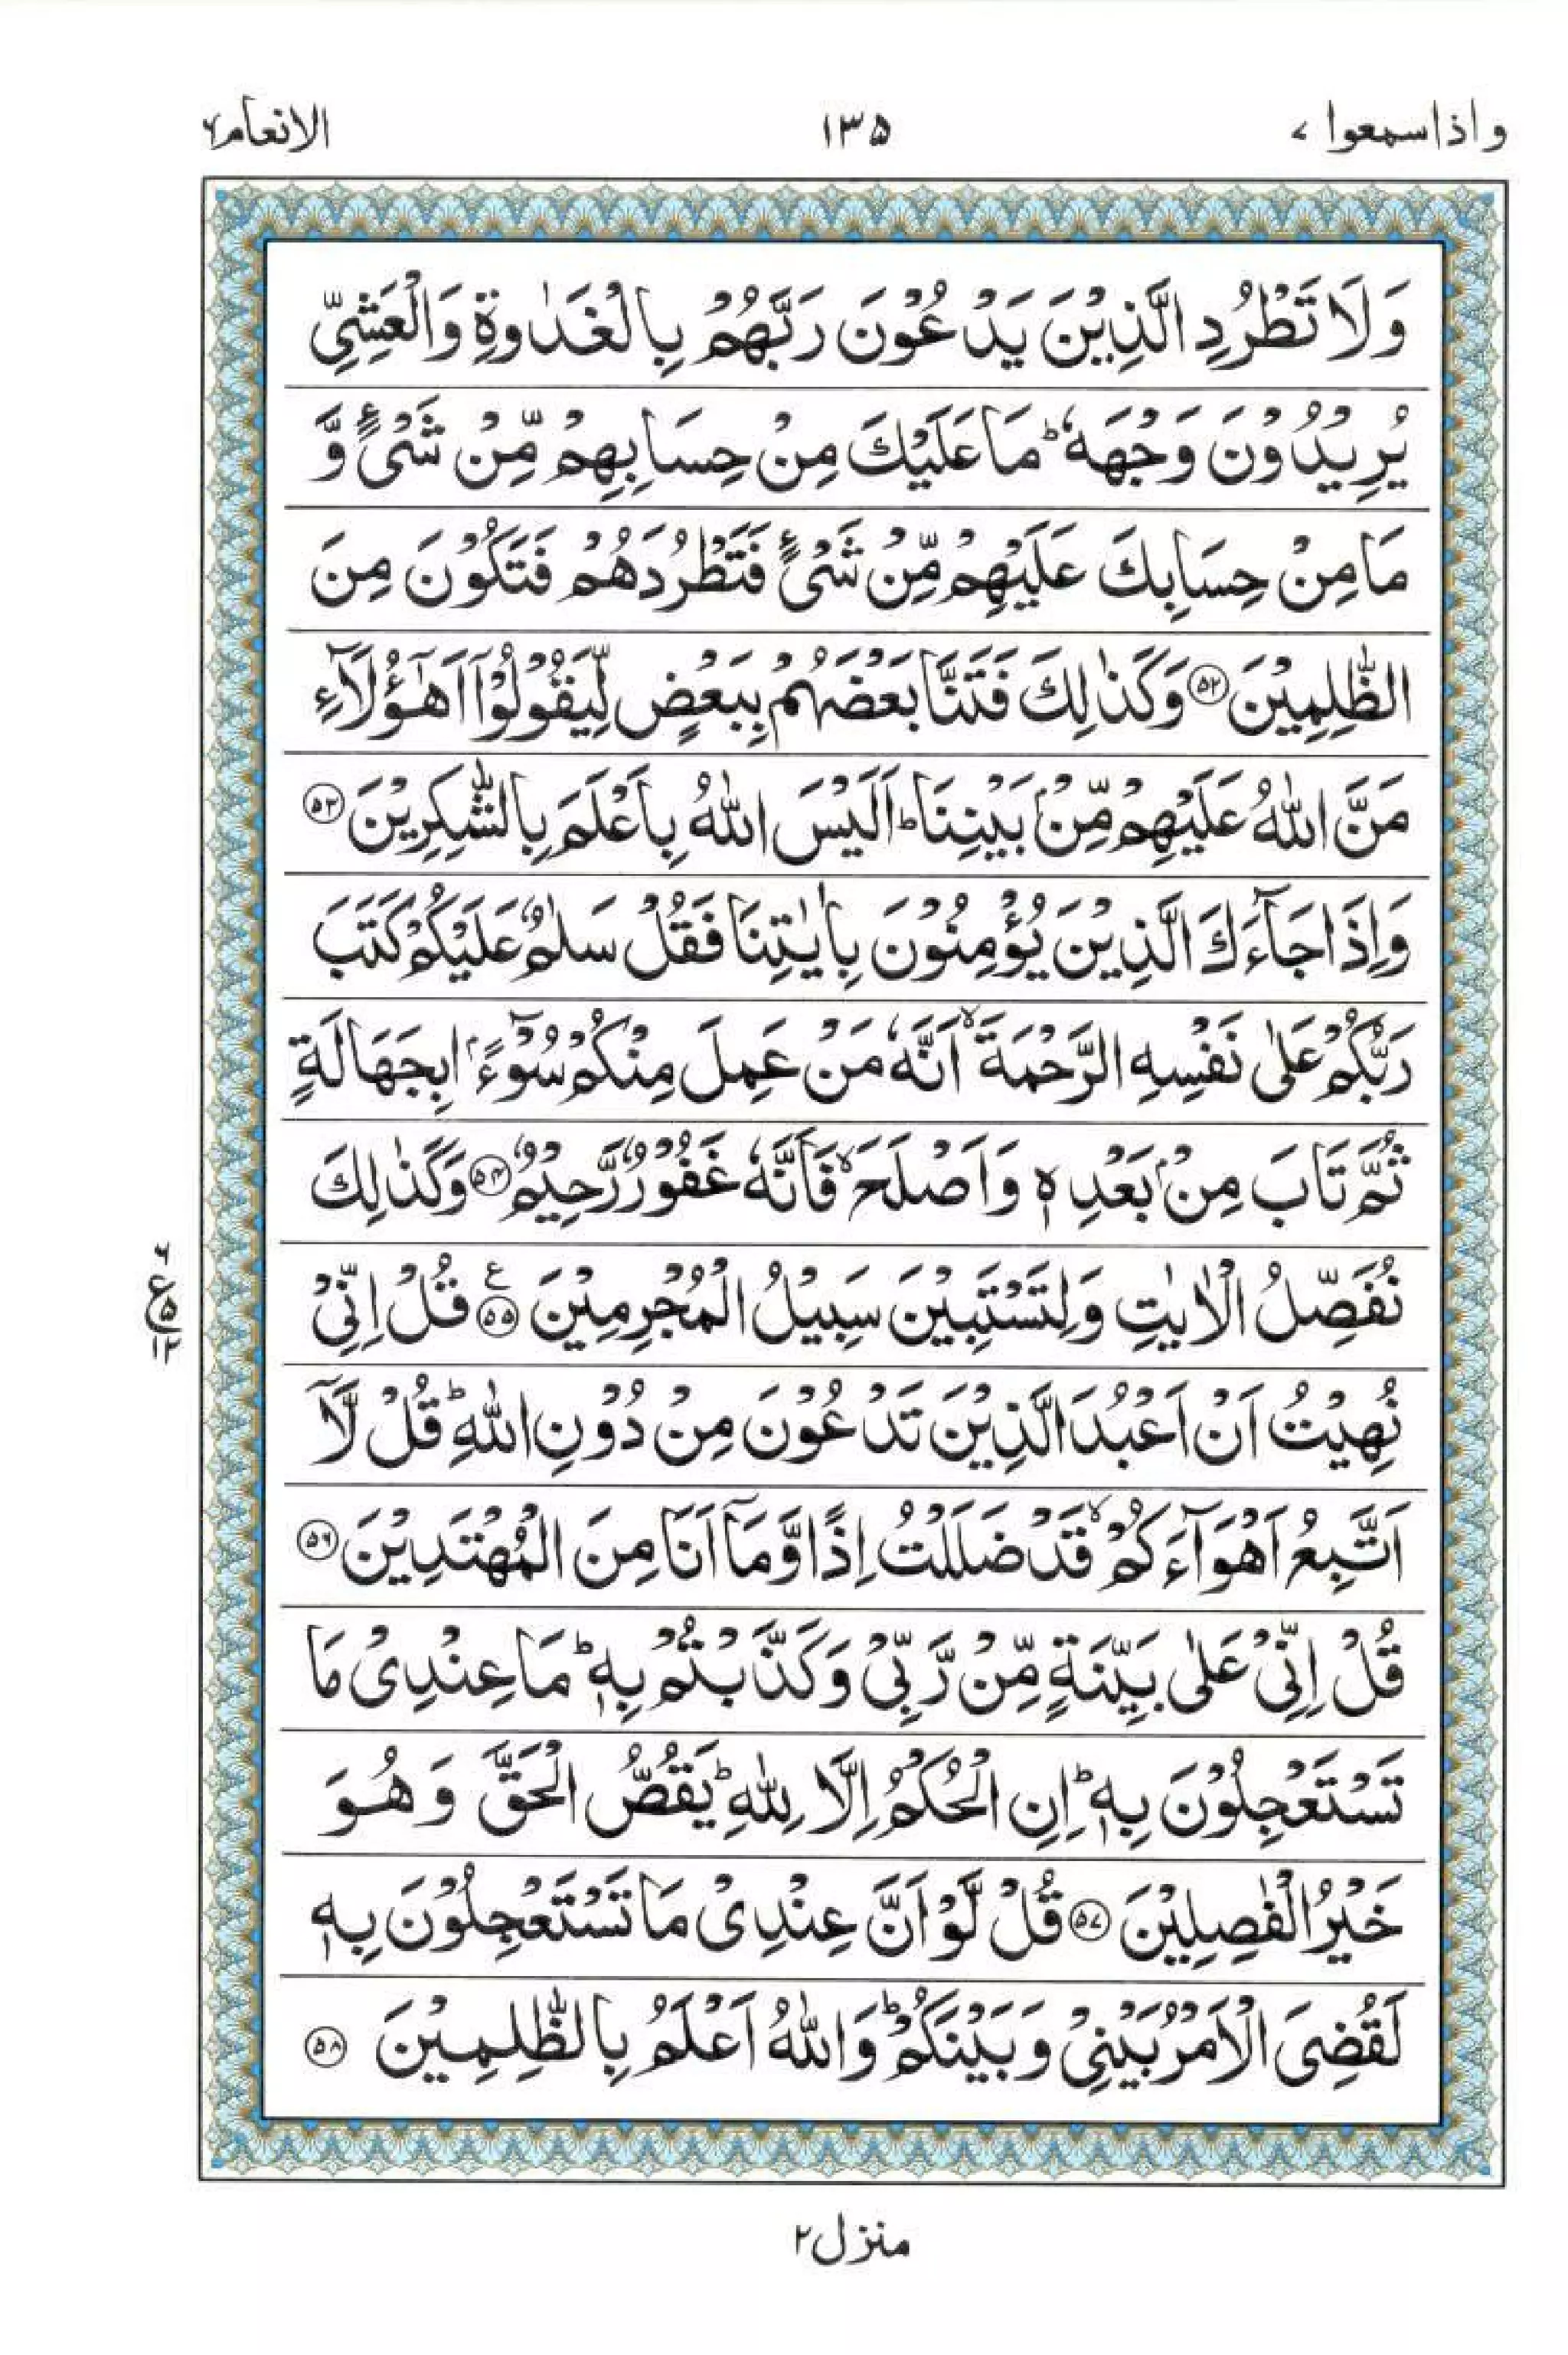 واذاسمعوا ٧ ١٣٥ الانعام ٦
وَلَا تَطْرُدِ الَّذِيْنَ يَدْعُوْنَ رَبَّهُمْ بِالْغَدٰوةِ وَالْعَشِيِّ
يُرِيْدُوْنَ وَجْهَهٗ ؕ مَا عَلَيْكَ مِنْ حِسَابِهِمْ مِّنْ شَيْءٍ وَّ
مَا مِنْ حِسَابِكَ عَلَيْهِمْ مِّنْ شَيْءٍ فَتَطْرُدَهُمْ فَتَكُوْنَ مِنَ
الظّٰلِمِيْنَ ۝۵۲ وَكَذٰلِكَ فَتَنَّا بَعْضَهُمْ بِبَعْضٍ لِّيَقُوْلُوْۤا اَهٰۤؤُلَآءِ
مَنَّ اللّٰهُ عَلَيْهِمْ مِّنْۢ بَيْنِنَا ؕ اَلَيْسَ اللّٰهُ بِاَعْلَمَ بِالشّٰكِرِيْنَ ۝۵۳
وَاِذَا جَآءَكَ الَّذِيْنَ يُؤْمِنُوْنَ بِاٰيٰتِنَا فَقُلْ سَلٰمٌ عَلَيْكُمْ كَتَبَ
رَبُّكُمْ عَلٰى نَفْسِهِ الرَّحْمَةَ ۙ اَنَّهٗ مَنْ عَمِلَ مِنْكُمْ سُوْٓءًۢا بِجَهَالَةٍ
ثُمَّ تَابَ مِنْۢ بَعْدِهٖ وَاَصْلَحَ ۙ فَاَنَّهٗ غَفُوْرٌ رَّحِيْمٌ ۝۵۴ وَكَذٰلِكَ
نُفَصِّلُ الْاٰيٰتِ وَلِتَسْتَبِيْنَ سَبِيْلُ الْمُجْرِمِيْنَ ۝۵۵ ع قُلْ اِنِّيْ
٦ ع ۵ ١٢
نُهِيْتُ اَنْ اَعْبُدَ الَّذِيْنَ تَدْعُوْنَ مِنْ دُوْنِ اللّٰهِ ؕ قُلْ لَّاۤ
اَتَّبِعُ اَهْوَآءَكُمْ ۙ قَدْ ضَلَلْتُ اِذًا وَّمَاۤ اَنَا مِنَ الْمُهْتَدِيْنَ ۝۵۶
قُلْ اِنِّيْ عَلٰى بَيِّنَةٍ مِّنْ رَّبِّيْ وَكَذَّبْتُمْ بِهٖ ؕ مَا عِنْدِيْ مَا
تَسْتَعْجِلُوْنَ بِهٖ ؕ اِنِ الْحُكْمُ اِلَّا لِلّٰهِ ؕ يَقُصُّ الْحَقَّ وَهُوَ
خَيْرُ الْفٰصِلِيْنَ ۝۵۷ قُلْ لَّوْ اَنَّ عِنْدِيْ مَا تَسْتَعْجِلُوْنَ بِهٖ
لَقُضِيَ الْاَمْرُ بَيْنِيْ وَبَيْنَكُمْ ؕ وَاللّٰهُ اَعْلَمُ بِالظّٰلِمِيْنَ ۝۵۸
منزل ٢